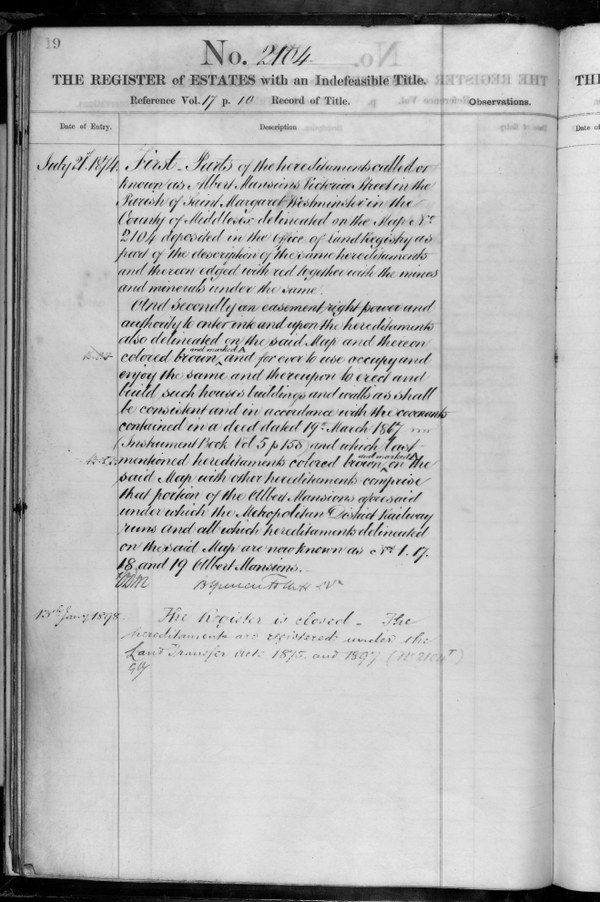 19
No. 2104
THE REGISTER of ESTATES with an Indefeasible Title.
Reference Vol. 17 p. 10 Record of Title.
Observations.
Date of Entry.
Description
July 21st 1874. First – Parts of the hereditaments called or
known as Albert Mansions Victoria Street in the
Parish of Saint Margaret Westminster in the
County of Middlesex delineated on the Map No.
2104 deposited in the Office of Land Registry as
part of the description of the same hereditaments
and thereon edged with red together with the mines
and minerals under the same.
And Secondly an easement, right power and
authority to enter into and upon the hereditaments
also delineated on the said Map and thereon
colored brown, and marked A and for ever to use occupy and
enjoy the same and thereupon to erect and
build such houses buildings and walls as shall
be consistent and in accordance with the covenants
contained in a deed dated 19th March 1867
(Instrument Book Vol 5 p 158) and which last
mentioned hereditaments colored brown and marked A, on the
said Map with other hereditaments comprise
that portion of the Albert Mansions aforesaid
under which the Metropolitan District Railway
runs and all which hereditaments delineated
on the said Map are now known as Nos 1. 17.
18 and 19 Albert Mansions.
13th Jany 1898 The Register is closed – The
hereditaments are registered under the
Land Transfer Acts 1875 and 1897 (No 2104T)
THE